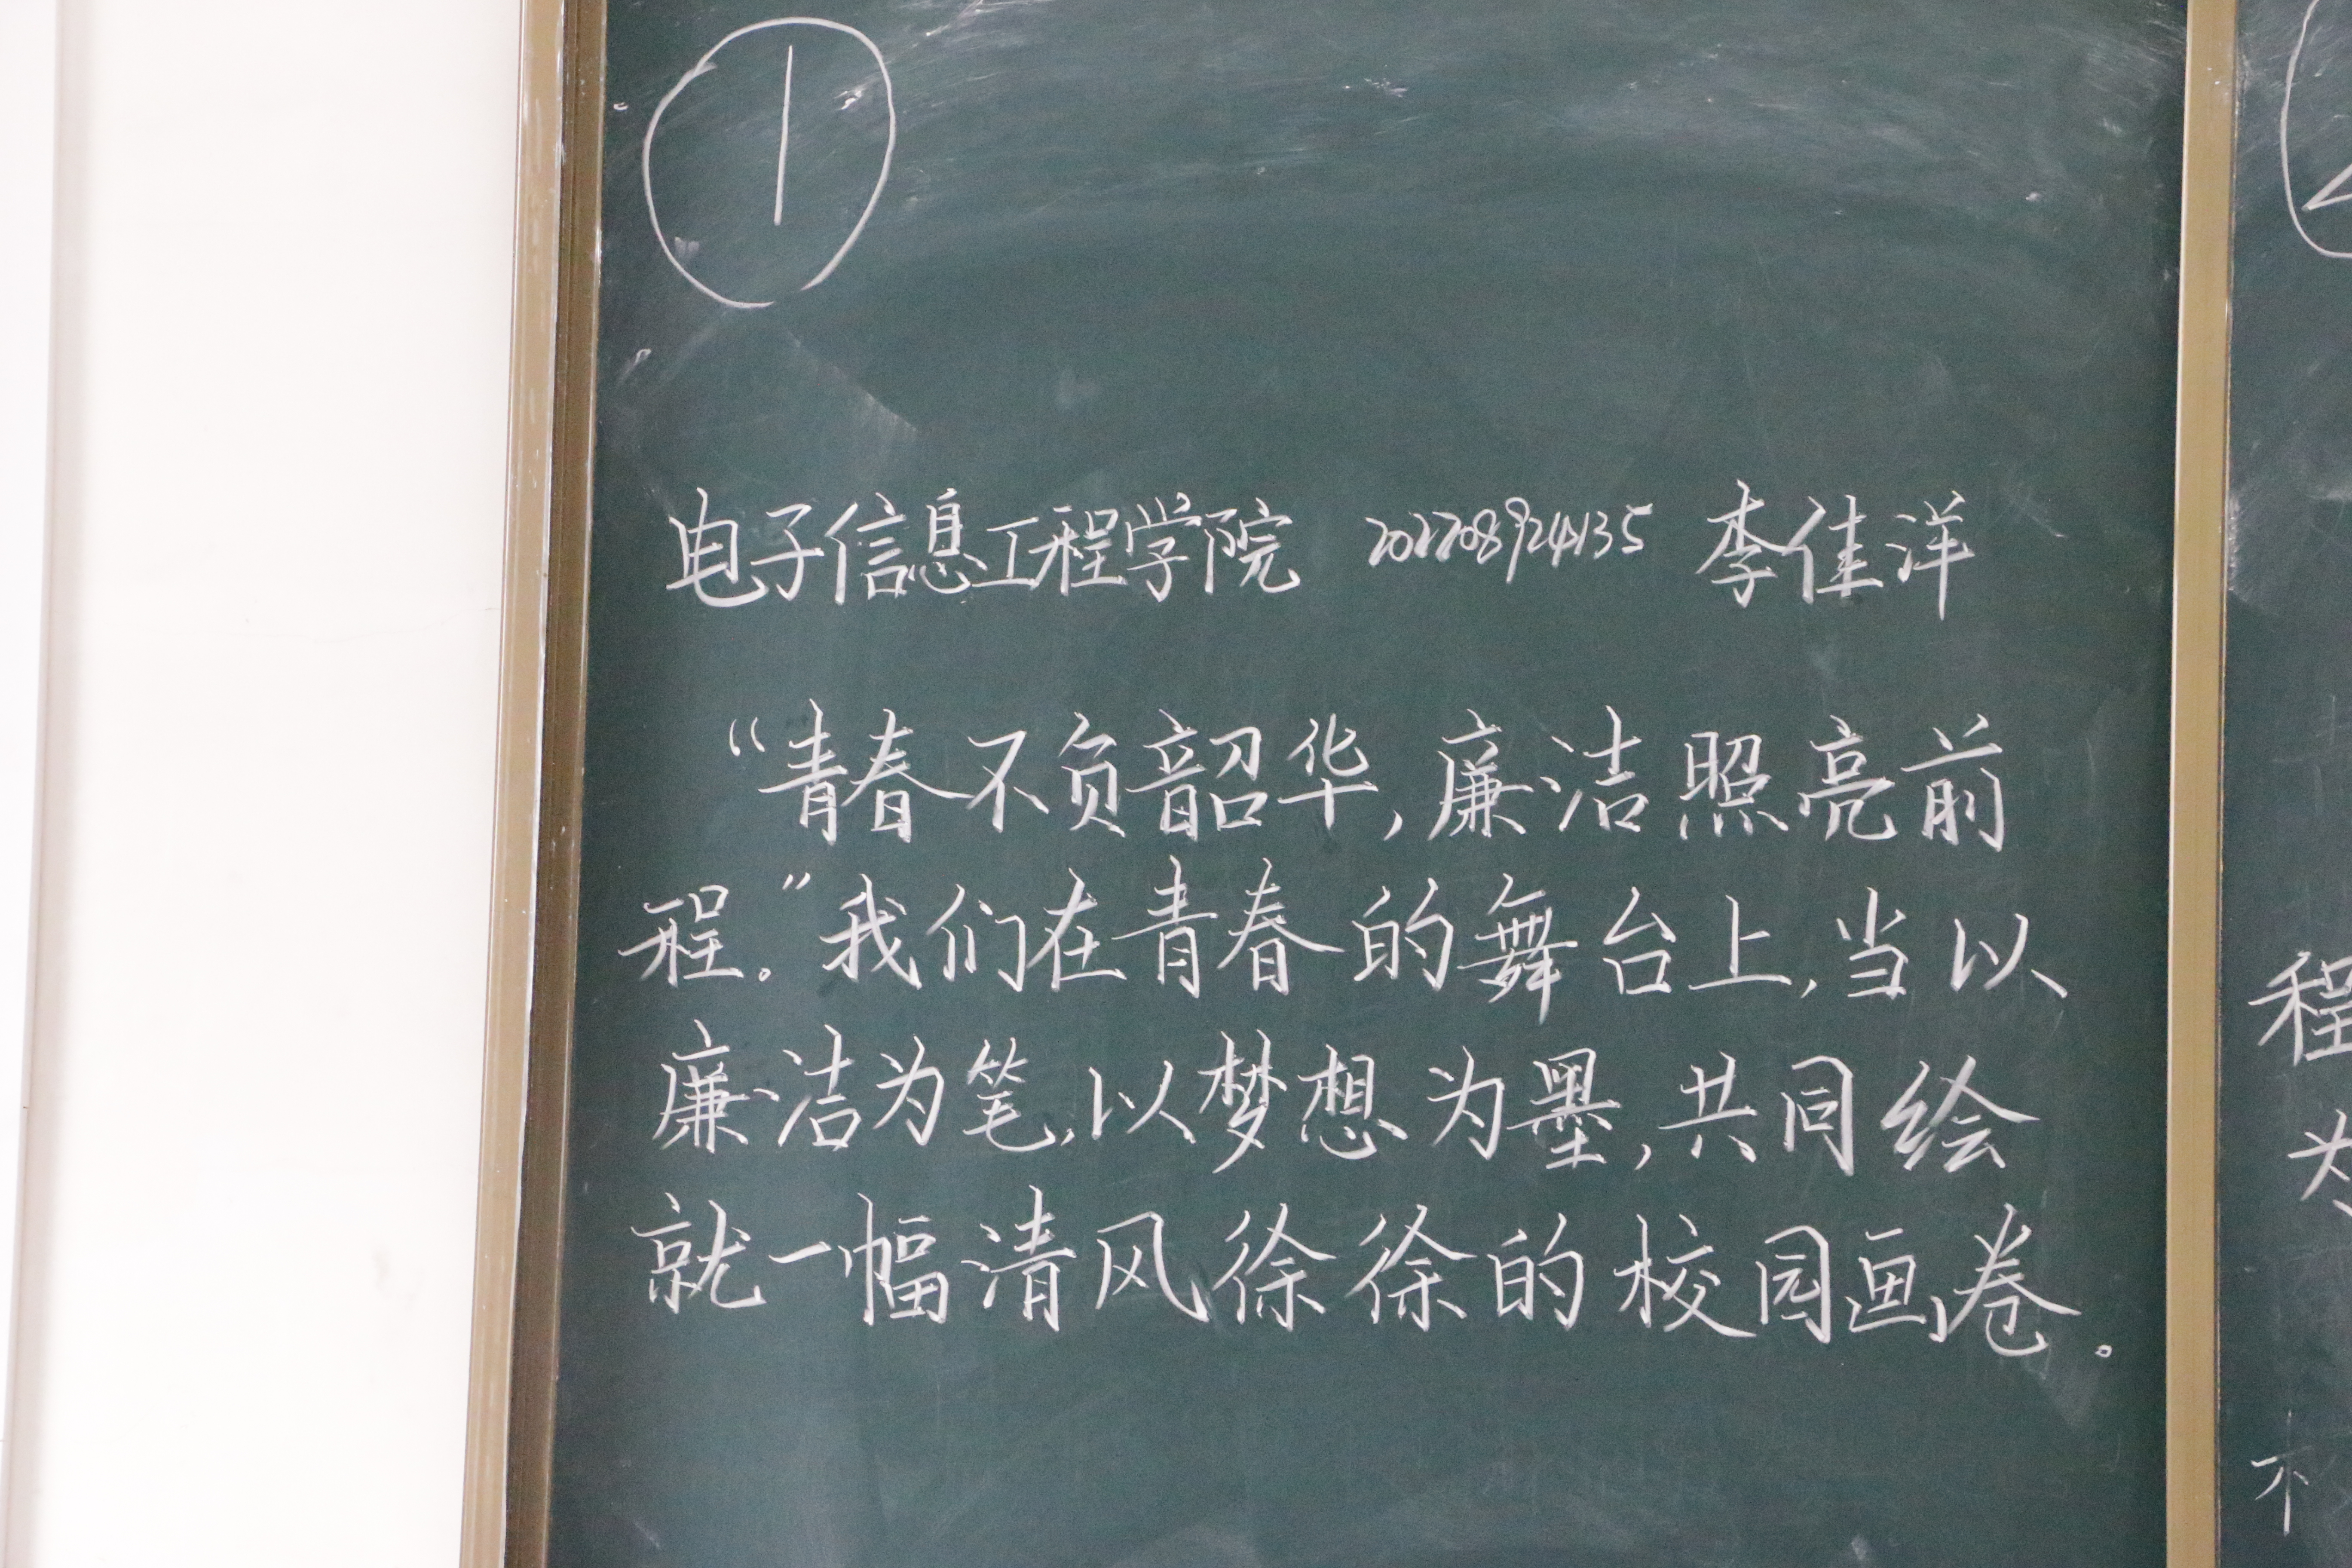 ①
电子信息工程学院 202208924135 李佳洋
“青春不负韶华,廉洁照亮前
程。”我们在青春的舞台上,当以
廉洁为笔,以梦想为墨,共同绘
就一幅清风徐徐的校园画卷。
程
为
不